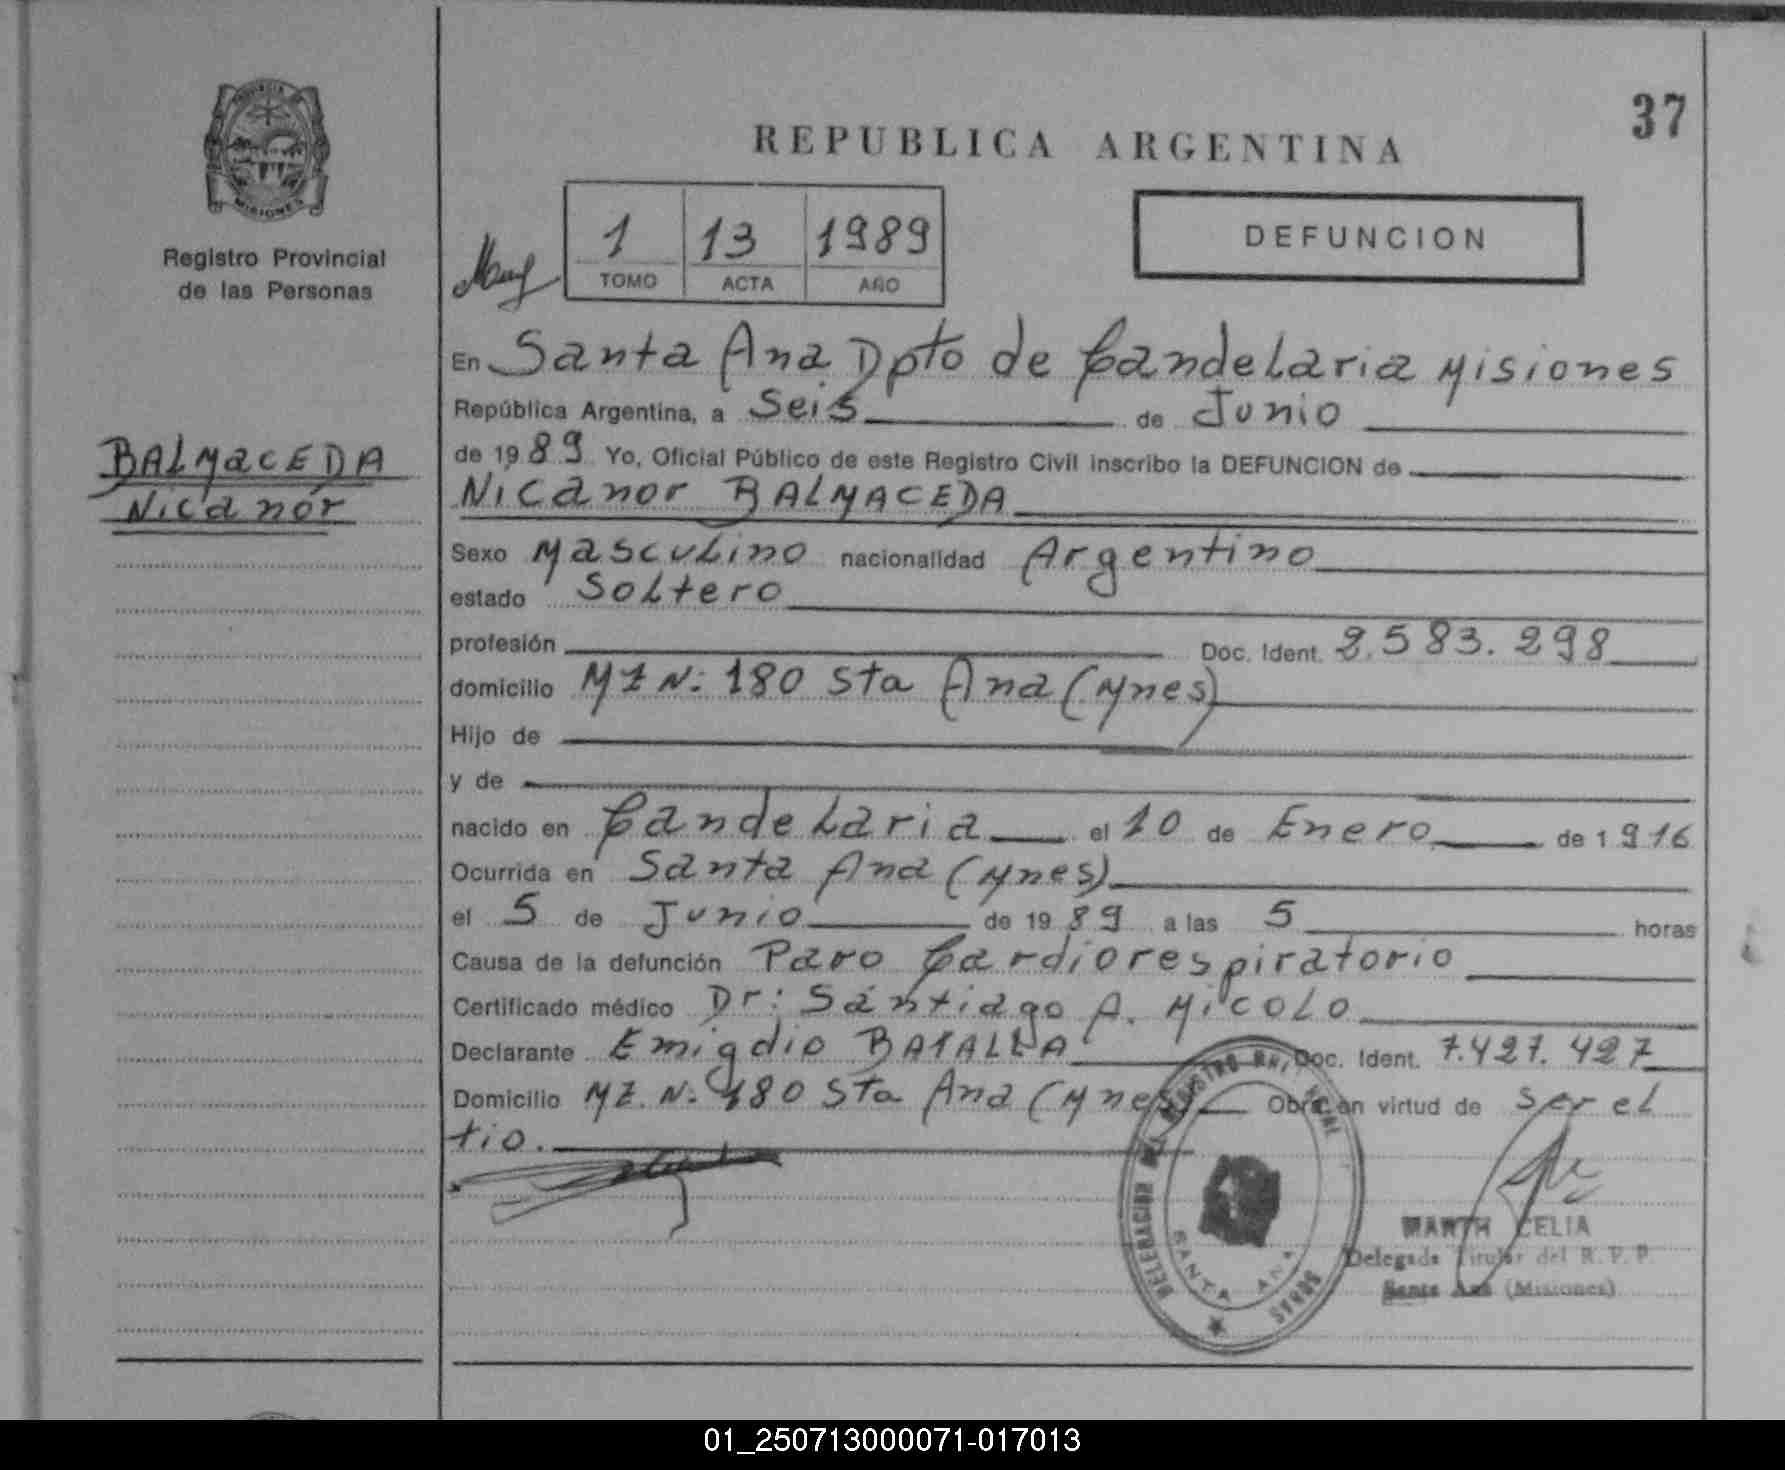 37
REPUBLICA ARGENTINA
PROVINCIA DE
MISIONES
Registro Provincial
de las Personas
1 13 1989
TOMO ACTA AÑO
DEFUNCION
En Santa Ana Dpto de Candelaria Misiones
República Argentina, a Seis de Junio
de 1989 Yo, Oficial Público de este Registro Civil inscribo la DEFUNCION de
BALMACEDA
Nicanor
Nicanor BALMACEDA
Sexo Masculino nacionalidad Argentino
estado Soltero
profesión Doc. Ident. 2.583.298
domicilio MZ N: 180 Sta Ana (Mnes)
Hijo de
y de
nacido en Candelaria el 10 de Enero de 1916
Ocurrida en Santa Ana (Mnes)
el 5 de Junio de 1989 a las 5 horas
Causa de la defunción Paro Cardiorespiratorio
Certificado médico Dr: Santiago A. Micolo
Declarante Emigdio BATALLA Doc. Ident. 7.427.427
Domicilio MZ. N: 180 Sta Ana (Mnes) Obra en virtud de Ser el
tio.
DELEGACION DEL REGISTRO
SANTA ANA
CELIA
Delegada Titular del R. P. P.
Santa Ana (Misiones)
01_250713000071-017013